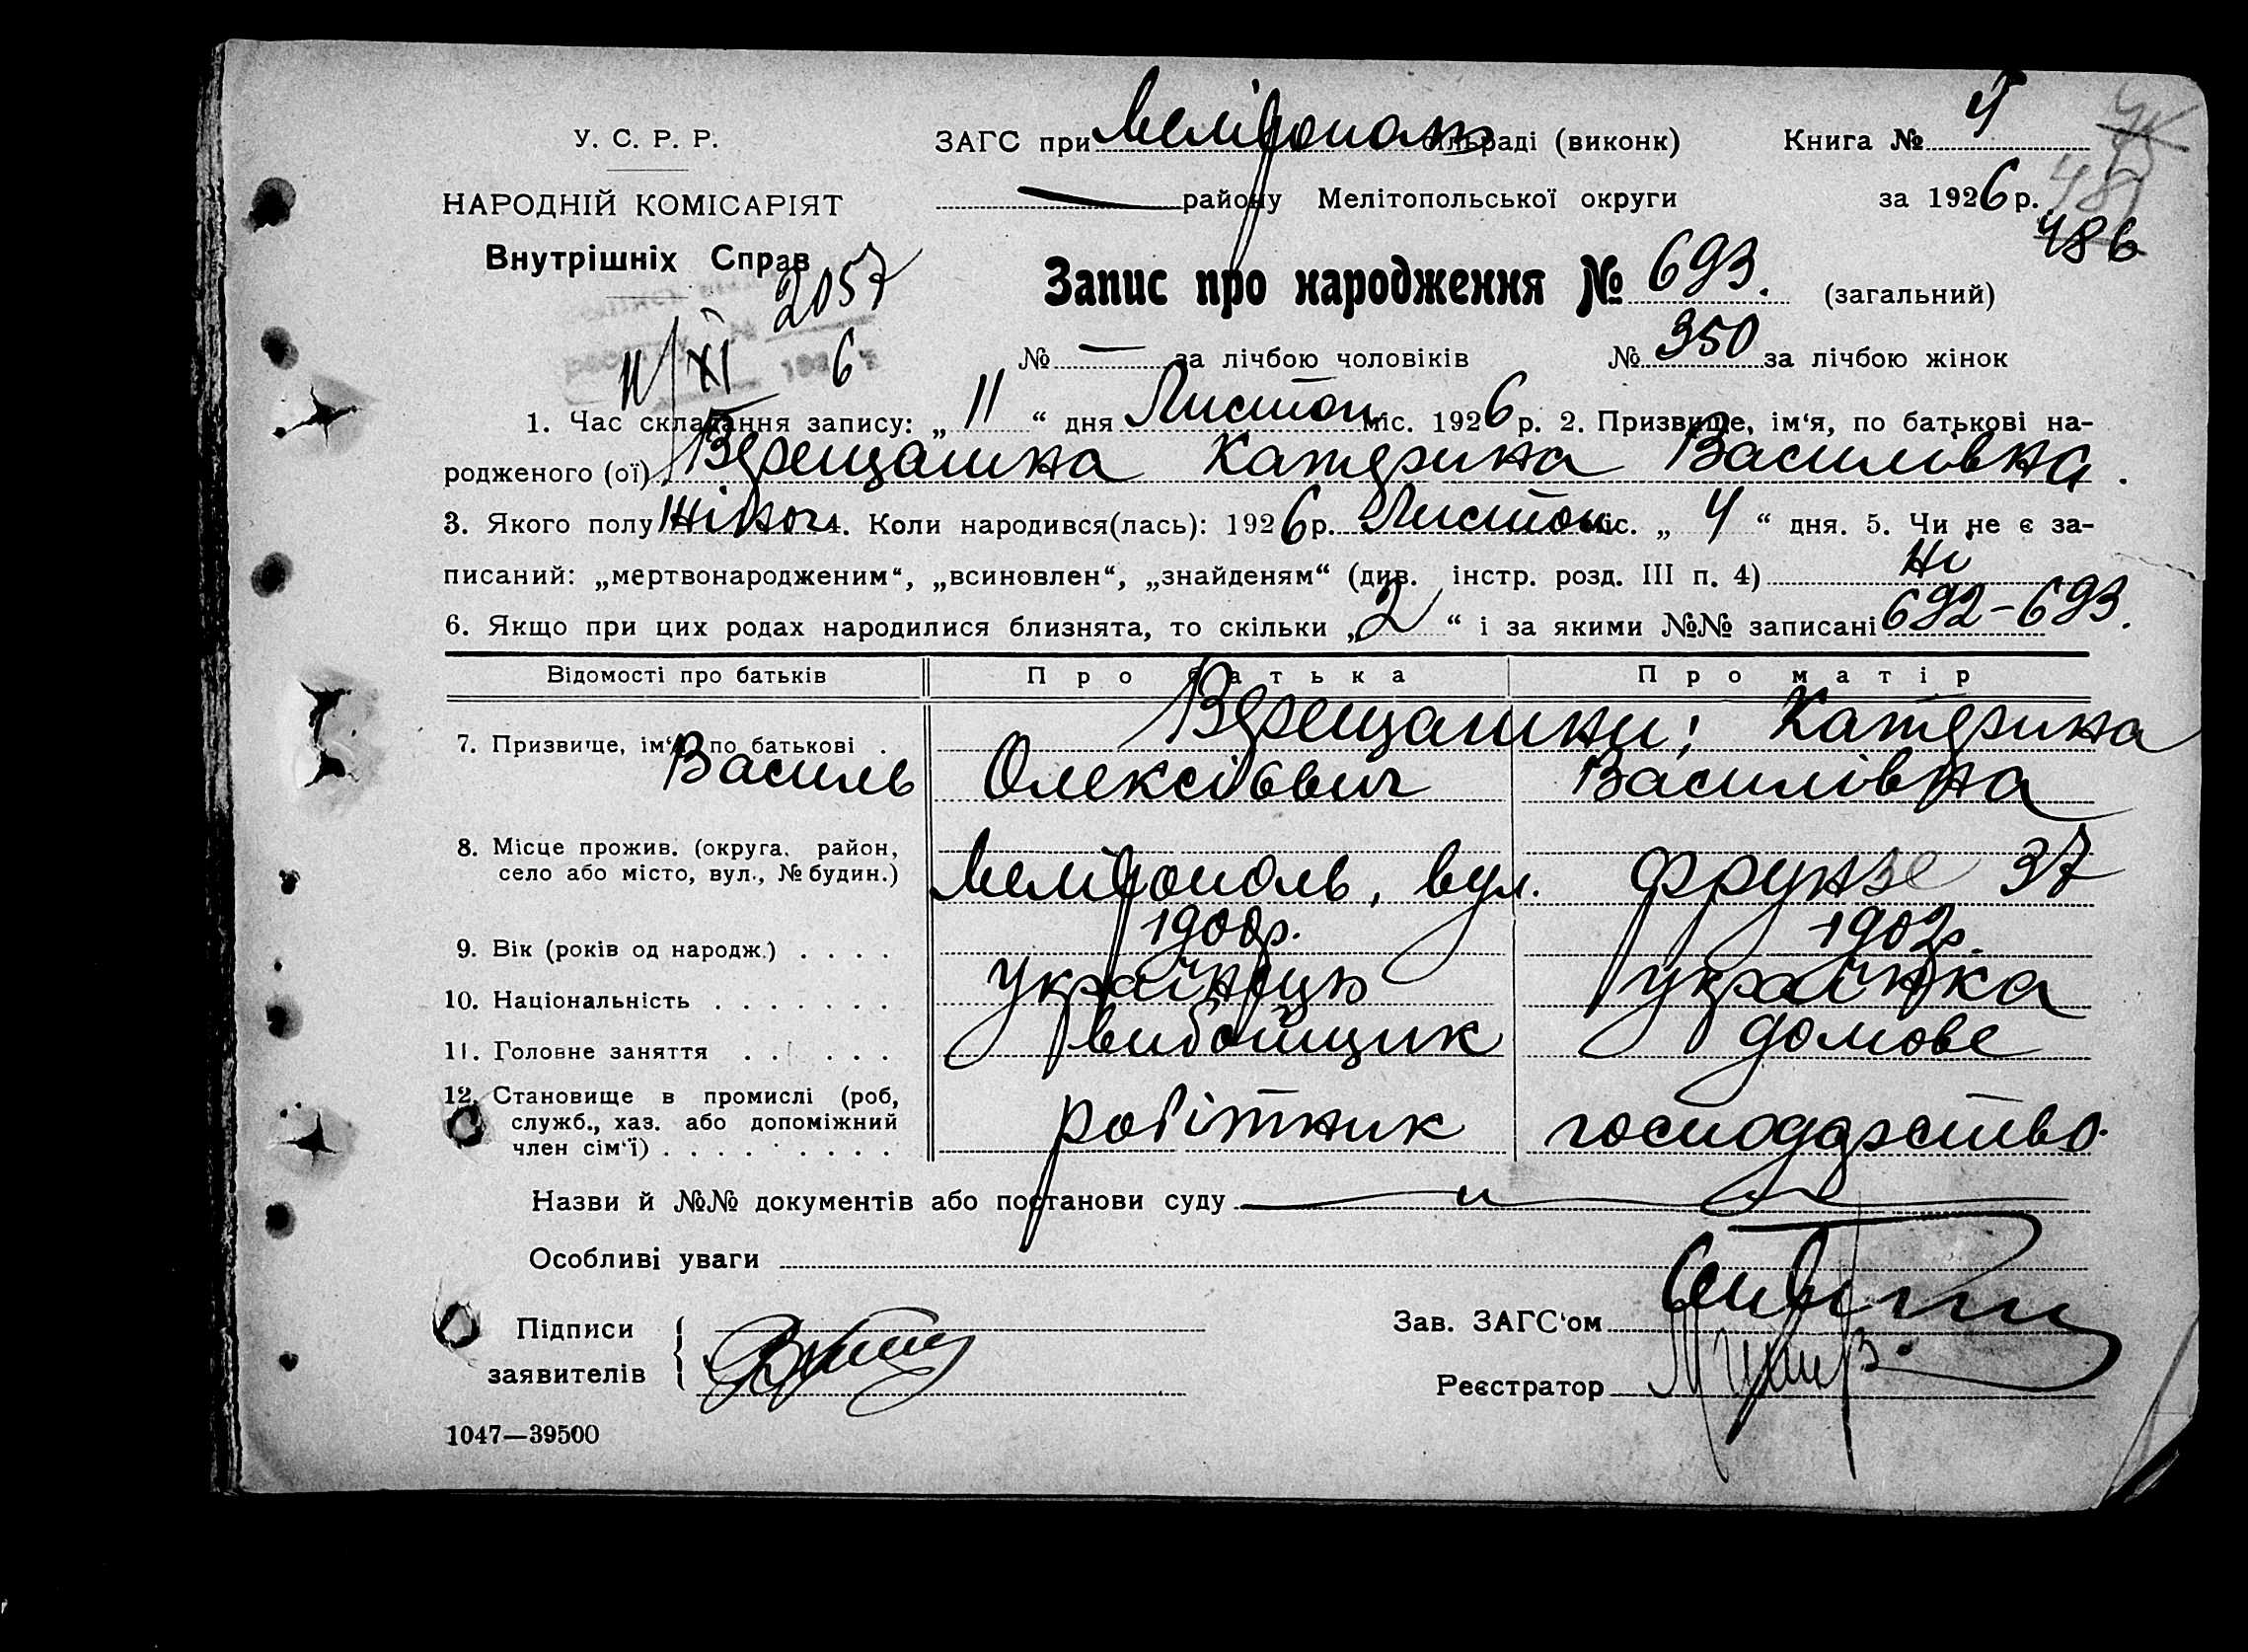 У. С. Р. Р.
НАРОДНІЙ КОМІСАРІЯТ
Внутрішніх Справ
2057
11/XI 6
ЗАГС при Мелітопол сільраді (виконк) Книга № 4
району Мелітопольської округи за 1926 р.
486
Запис про народження № 693. (загальний)
№ — за лічбою чоловіків № 350 за лічбою жінок
1. Час складання запису: „ 11 “ дня Листоп міс. 1926 р. 2. Призвище, ім‘я, по батькові на-
родженого (ої) Верещагина Катерина Василівна.
3. Якого полу Жіноч 4. Коли народився(лась): 1926 р. Листоп міс. „ 4 “ дня. 5. Чи не є за-
писаний: „мертвонародженим“, „всиновлен“, „знайденям“ (див. інстр. розд. III п. 4) Ні
6. Якщо при цих родах народилися близнята, то скільки „ 2 “ і за якими №№ записані 692-693.
Відомості про батьків Про батька Про матір
7. Призвище, ім‘я, по батькові . Верещагини: Катерина
Василь Олексієвич Василівна
8. Місце прожив. (округа, район,
село або місто, вул., № будин.) Мелітополь, вул. Фрунзе 37
9. Вік (років од народж.) . . . . 1900р. 1902р.
10. Національність . . . . . . . українець українка
11. Головне заняття . . . . . . вибойщик домове
12. Становище в промислі (роб,
служб., хаз. або допоміжний
член сім‘ї) . . . . . . . . . робітник господарство.
Назви й №№ документів або постанови суду
Особливі уваги
Підписи
заявителів
Зав. ЗАГС‘ом
Реєстратор
1047—39500